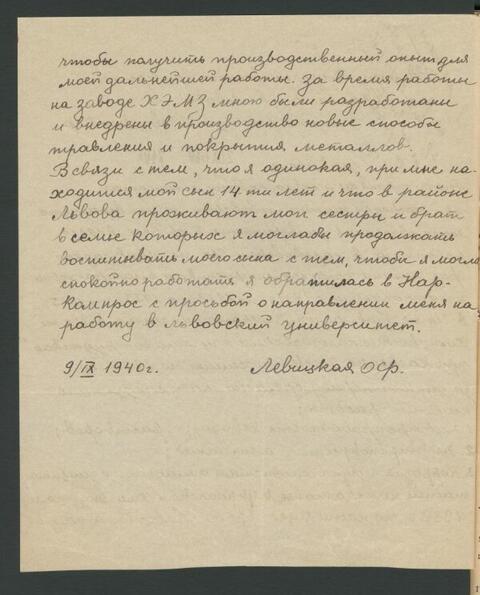 чтобы получить производственный опыт для
моей дальнейшей работы. За время работы
на заводе ХЭМЗ мною были разработаны
и внедрены в производство новые способы
травления и покрытия металлов.
В связи с тем, что я одинокая, при мне на-
ходится мой сын 14ти лет и что в районе
Львова проживают мои сестры и брат
в семье которых я моглабы продолжать
воспитывать моего сына с тем, чтобы я могла
спокойно работать я обратилась в Нар-
компрос с просьбой о направлении меня на
работу в Львовский университет.
9/IX 1940г. Левицкая ОСР.